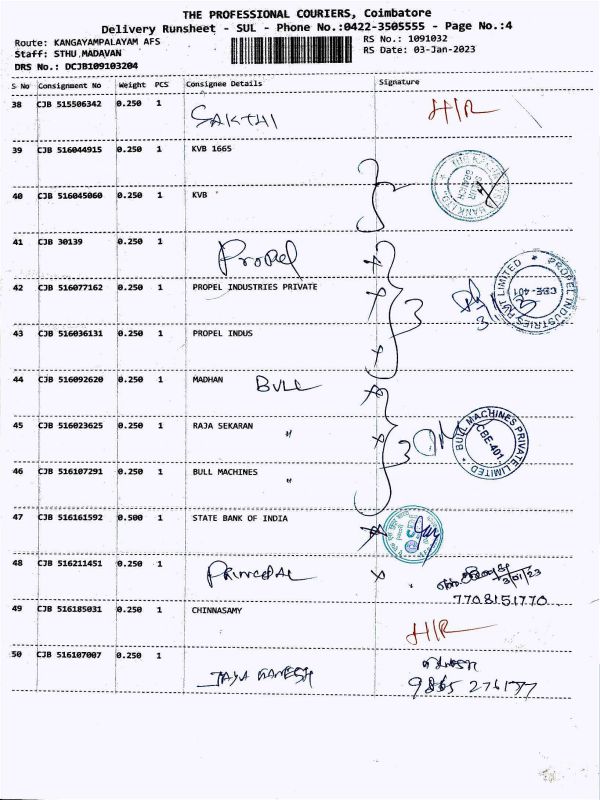 THE PROFESSIONAL COURIERS, Coimbatore
Delivery Runsheet - SUL - Phone No.:0422-3505555 - Page No.:4
Route: KANGAYAMPALAYAM AFS RS No.: 1091032
Staff: STHU MADAVAN RS Date: 03-Jan-2023
DRS No.: DCJB109103204
S No Consignment No Weight PCS Consignee Details Signature
38 CJB 515506342 0.250 1 SAKTHI H/R
39 CJB 516044915 0.250 1 KVB 1665
40 CJB 516045060 0.250 1 KVB
41 CJB 30139 0.250 1 Propel
42 CJB 516077162 0.250 1 PROPEL INDUSTRIES PRIVATE 3
PROPEL INDUSTRIES PVT LIMITED
CBE-401
43 CJB 516036131 0.250 1 PROPEL INDUS
44 CJB 516092620 0.250 1 MADHAN BULL
45 CJB 516023625 0.250 1 RAJA SEKARAN " 3
BULL MACHINES PRIVATE LIMITED
CBE-401
46 CJB 516107291 0.250 1 BULL MACHINES "
47 CJB 516161592 0.500 1 STATE BANK OF INDIA
48 CJB 516211451 0.250 1 PRINCIPAL 3/01/23
7708151770
49 CJB 516185031 0.250 1 CHINNASAMY H/R
50 CJB 516107007 0.250 1 JAYA GANESH
9865 276177